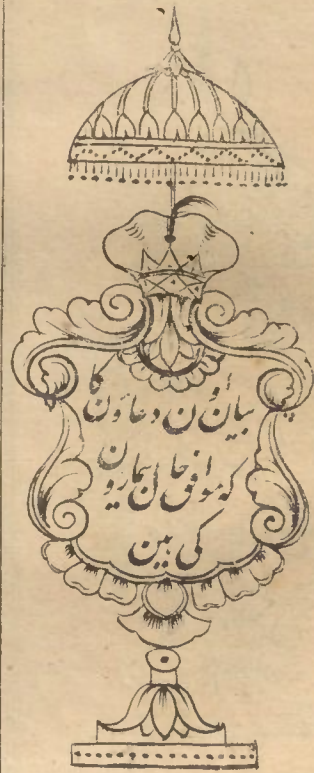 بیان أون دعاؤن کا
که موافق حال بیمارون
کی ہین